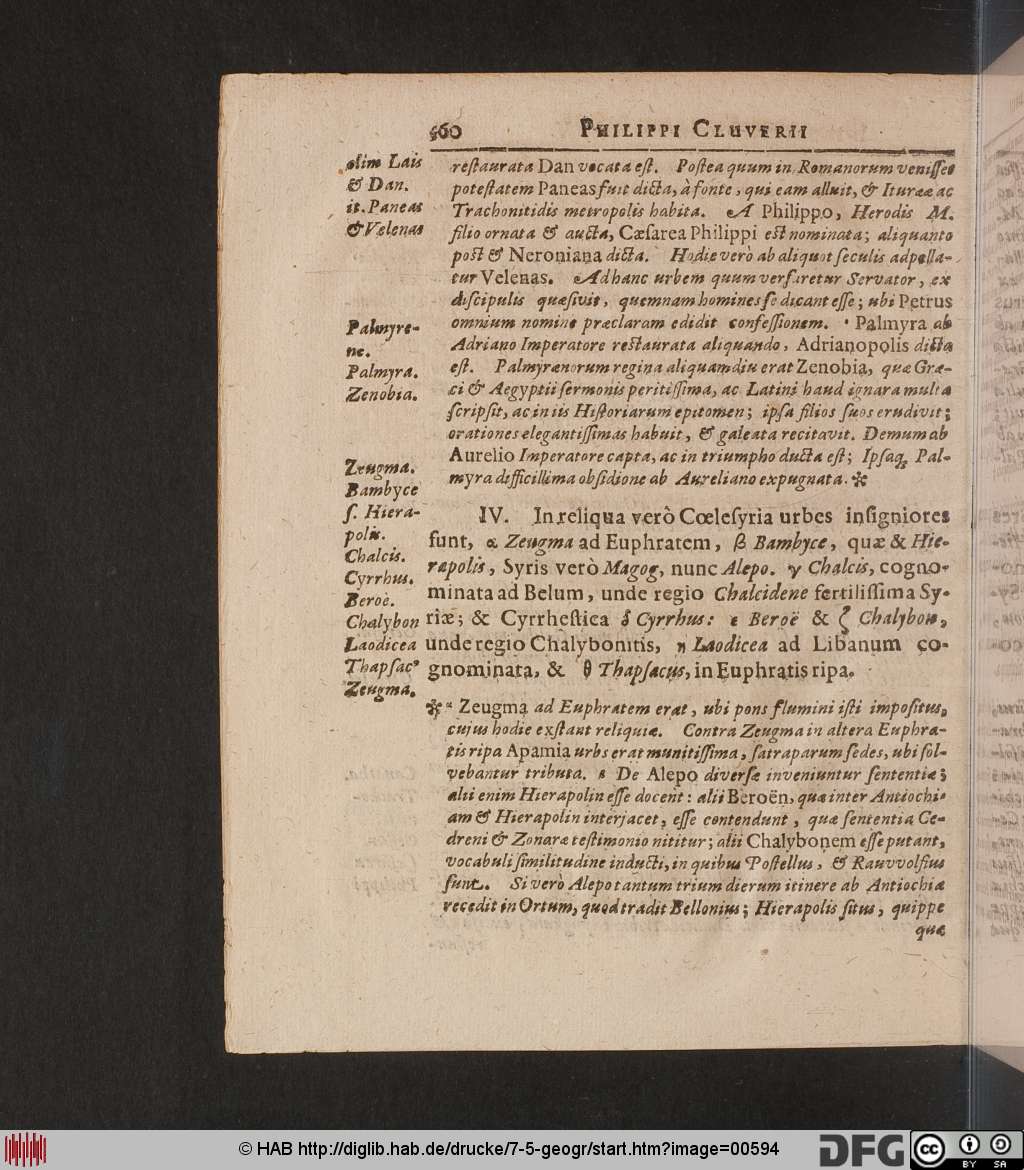 560 PHILIPPI CLUVERII
olim Lais
& Dan.
it. Paneas
& Velenas
restaurata Dan vocata est. Postea quum in Romanorum venisset
potestatem Paneas fuit dicta, à fonte, qui eam alluit, & Iturææ ac
Trachonitidis metropolis habita. A Philippo, Herodis M.
filio ornata & aucta, Cæsarea Philippi est nominata; aliquanto
post & Neroniana dicta. Hodie verò ab aliquot seculis adpella-
tur Velenas. Ad hanc urbem quum versaretur Servator, ex
discipulis quæsivit, quemnam homines se dicant esse; ubi Petrus
omnium nomine præclaram edidit confessionem. Palmyra ab
Adriano Imperatore restaurata aliquando, Adrianopolis dicta
est. Palmyrænorum regina aliquamdiu erat Zenobia, quæ Græ-
ci & Aegyptii sermonis peritissima, ac Latini haud ignara multa
scripsit, ac in iis Historiarum epitomen; ipsa filios suos erudivit;
orationes elegantissimas habuit, & galeata recitavit. Demum ab
Aurelio Imperatore capta, ac in triumpho ducta est; Ipsaq; Pal-
myra difficillima obsidione ab Aureliano expugnata. *
Palmyre-
ne.
Palmyra.
Zenobia.
Zeugma.
Bambyce
s. Hiera-
polis.
Chalcis.
Cyrrhus.
Beroë.
Chalybon
Laodicea
Thapsacꝰ
Zeugma.
IV. In reliqua verò Cœlesyria urbes insigniores
sunt, α Zeugma ad Euphratem, β Bambyce, quæ & Hie-
rapolis, Syris verò Magog, nunc Alepo. γ Chalcis, cogno-
minata ad Belum, unde regio Chalcidene fertilissima Sy-
riæ; & Cyrrhestica δ Cyrrhus: ε Beroë & ζ Chalybon,
unde regio Chalybonitis, η Laodicea ad Libanum co-
gnominata, & θ Thapsacus, in Euphratis ripa.
* α Zeugma ad Euphratem erat, ubi pons flumini isti impositus,
cujus hodie exstant reliquiæ. Contra Zeugma in altera Euphra-
tis ripa Apamia urbs erat munitissima, satraparum sedes, ubi sol-
vebantur tributa. β De Alepo diversæ inveniuntur sententiæ;
alii enim Hierapolin esse docent: alii Beroën, quæ inter Antiochi-
am & Hierapolin interjacet, esse contendunt, quæ sententia Ce-
dreni & Zonaræ testimonio nititur; alii Chalybonem esse putant,
vocabuli similitudine inducti, in quibus Postellus, & Rauvvolfius
sunt. Si verò Alepo tantum trium dierum itinere ab Antiochia
recedit in Ortum, quod tradit Bellonius; Hierapolis situs, quippe
quæ
© HAB http://diglib.hab.de/drucke/7-5-geogr/start.htm?image=00594
DFG
cc
BY SA